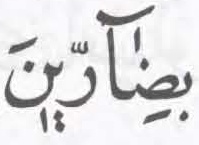 بِضَآرِّينَ